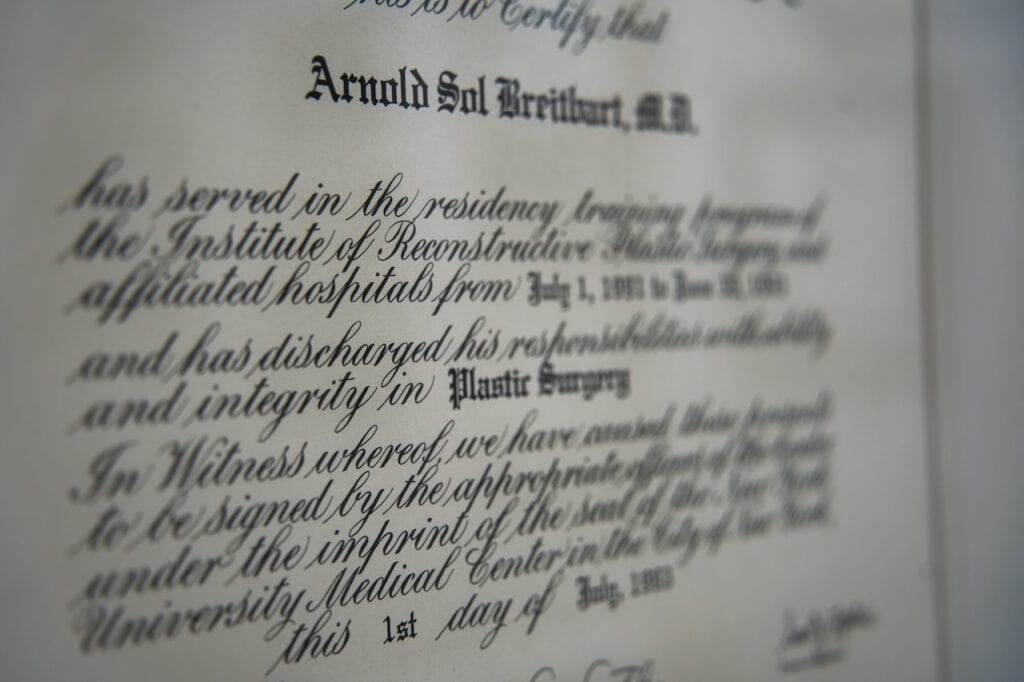 This is to Certify that
Arnold Sol Breitbart, M.D.
has served in the residency training program of
the Institute of Reconstructive Plastic Surgery and
affiliated hospitals from July 1, 1991 to June 30, 1993
and has discharged his responsibilities with ability
and integrity in Plastic Surgery
In Witness whereof, we have caused these presents
to be signed by the appropriate officers of the Center
under the imprint of the seal of the New York
University Medical Center in the City of New York
this 1st day of July, 1993